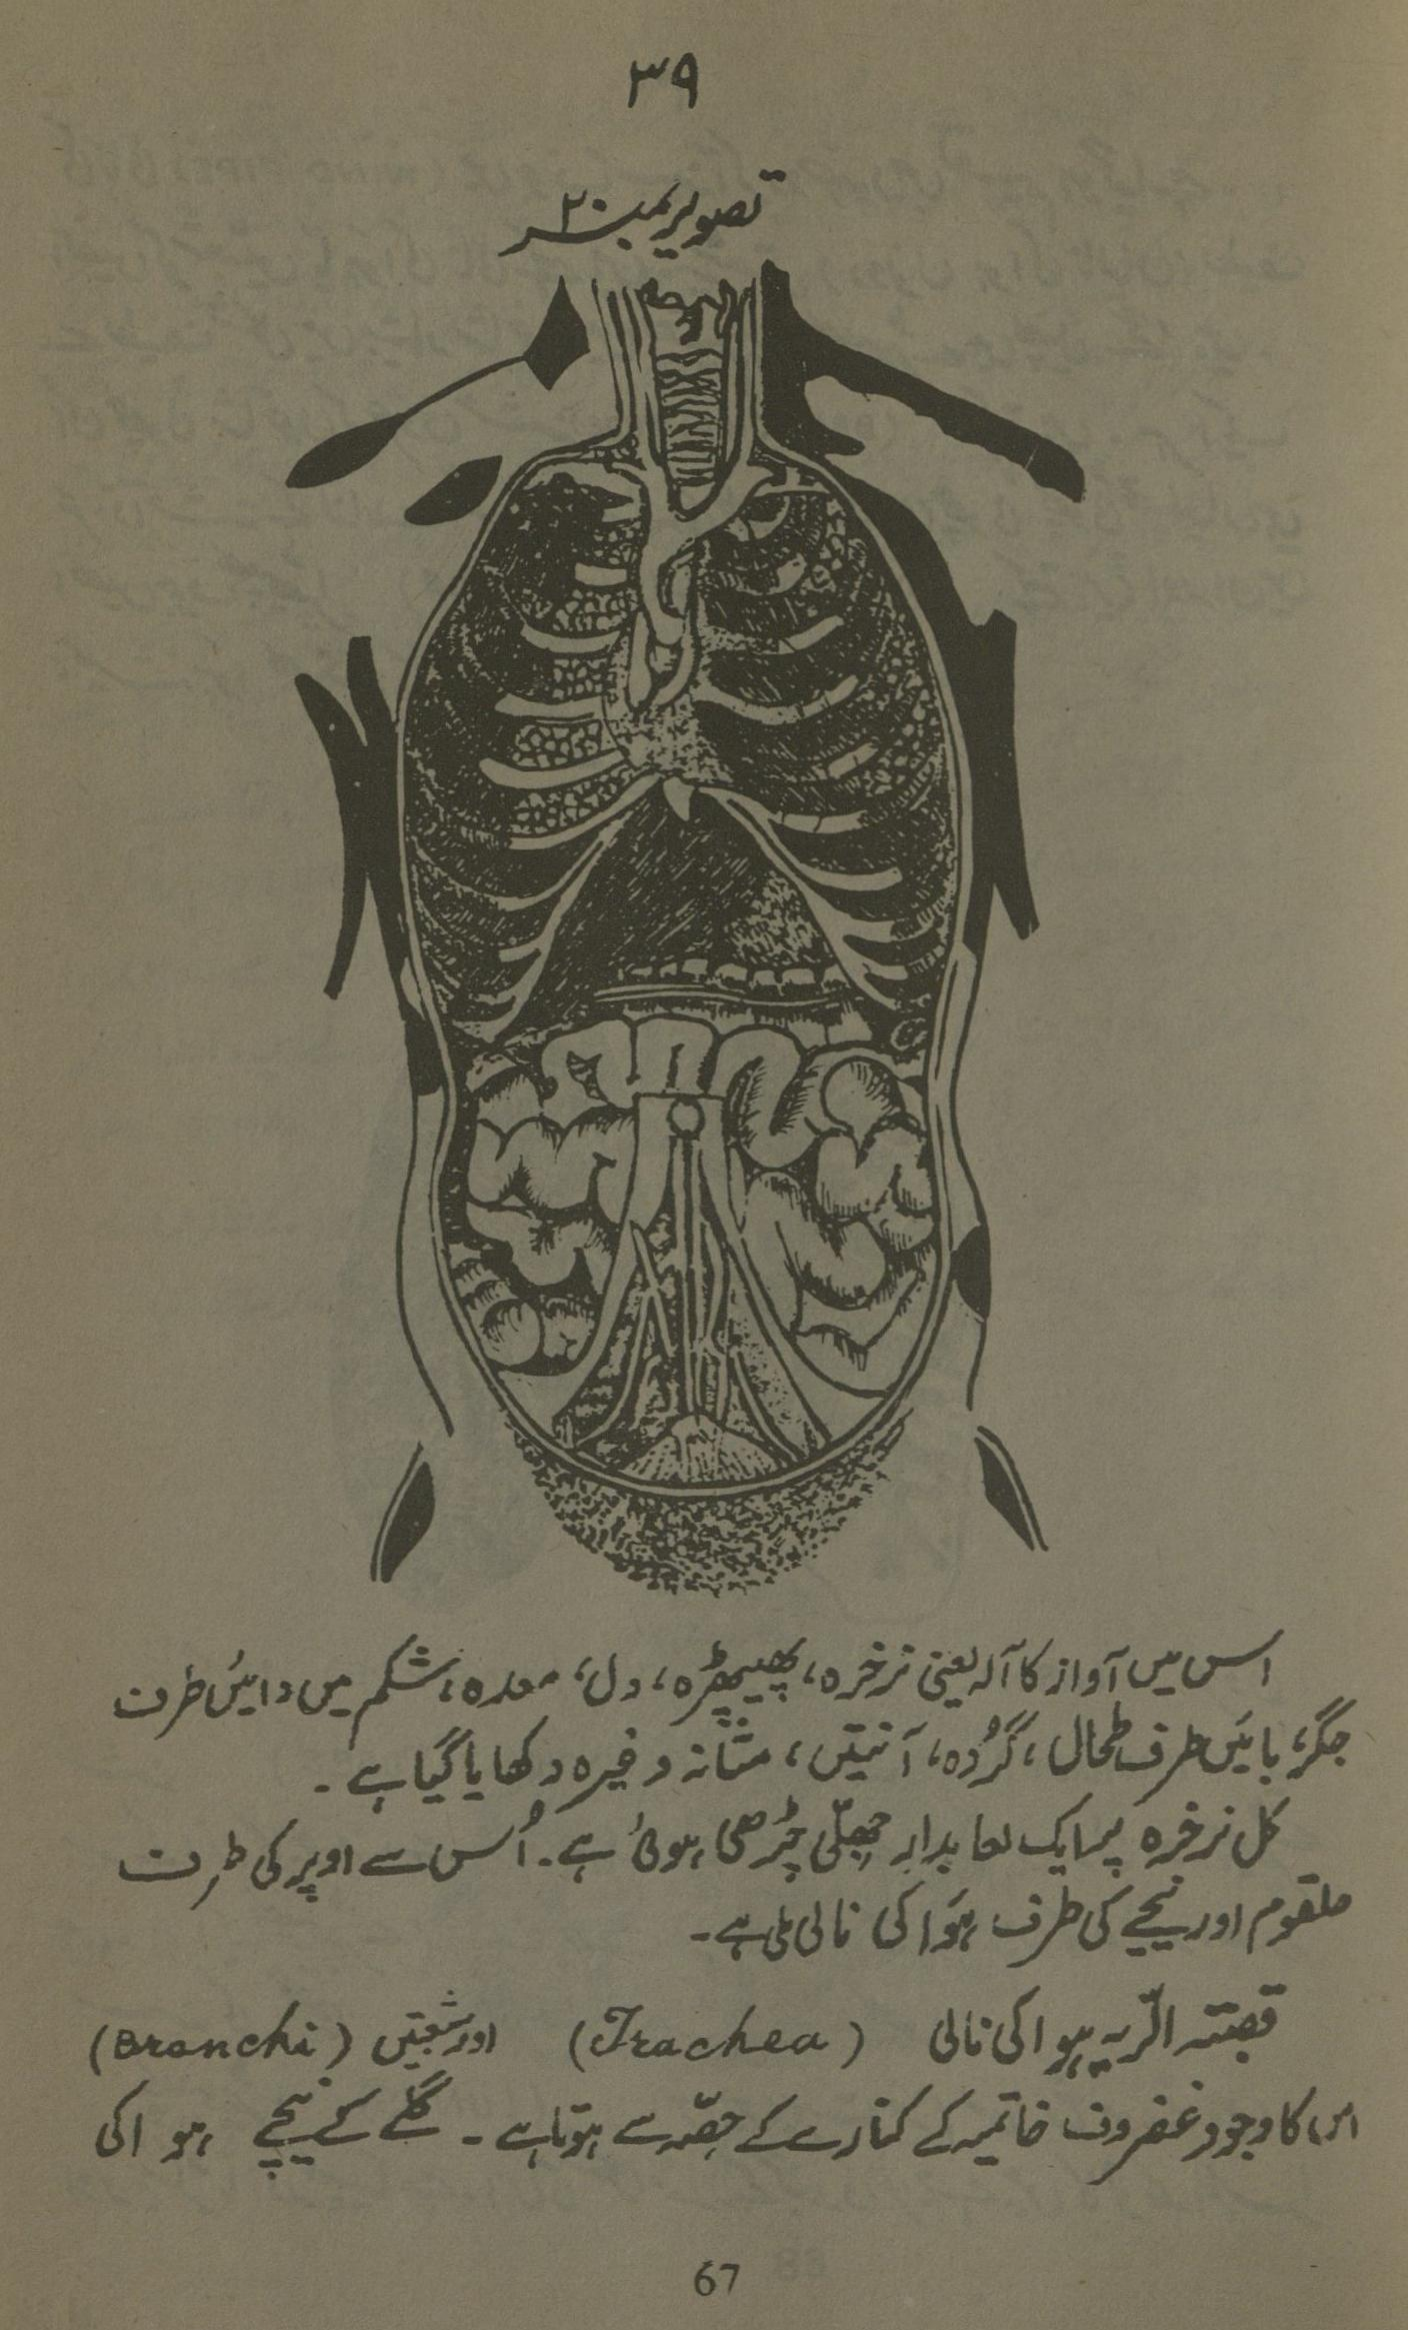 ۳۹
تصویر نمبر ۲۰
اس میں آواز کا آلہ یعنی نرخرہ، پھیپھڑہ، دل، معدہ، شکم میں دائیں طرف
جگر، بائیں طرف طحال، گُردہ، آنیتں، مثانہ وغیرہ دکھایا گیا ہے۔
کل نرخرہ پر ایک لعابدار جھلّی چڑھی ہوئی ہے۔ اُس سے اوپر کی طرف
حلقوم اور نیچے کی طرف ہَوا کی نالی ملی ہے۔
قصبتہ الرّیہ ہوا کی نالی (Trachea) اور شعبتیں (Branchi)
اس کا وجود غضروف خاتمیہ کے کنارے کے حصّہ سے ہوتا ہے۔ گلے کے نیچے ہوا کی
67